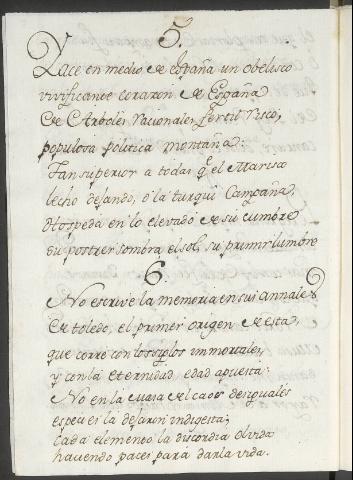 5.
Yace en medio de España un obelisco
vivificante corazon de España
de Arboles racionales fertil risco,
populosa politica montaña:
Tan superior a todas q.e el Marisco
lecho dejando, ò la turquí Campaña,
Hospeda en lo elevado de su cumbre
su postrer sombra el sol, su primer lumbre
6.
No escrive la memoria en sus annales
de toledo, el primer origen de esta,
que corre con los siglos immortales,
y con la eternidad edad apuesta:
No en la cuna del caos desiguales
especies la dejaron indigesta;
Cada elemento la discordia olvida
haciendo paces para darla vida.